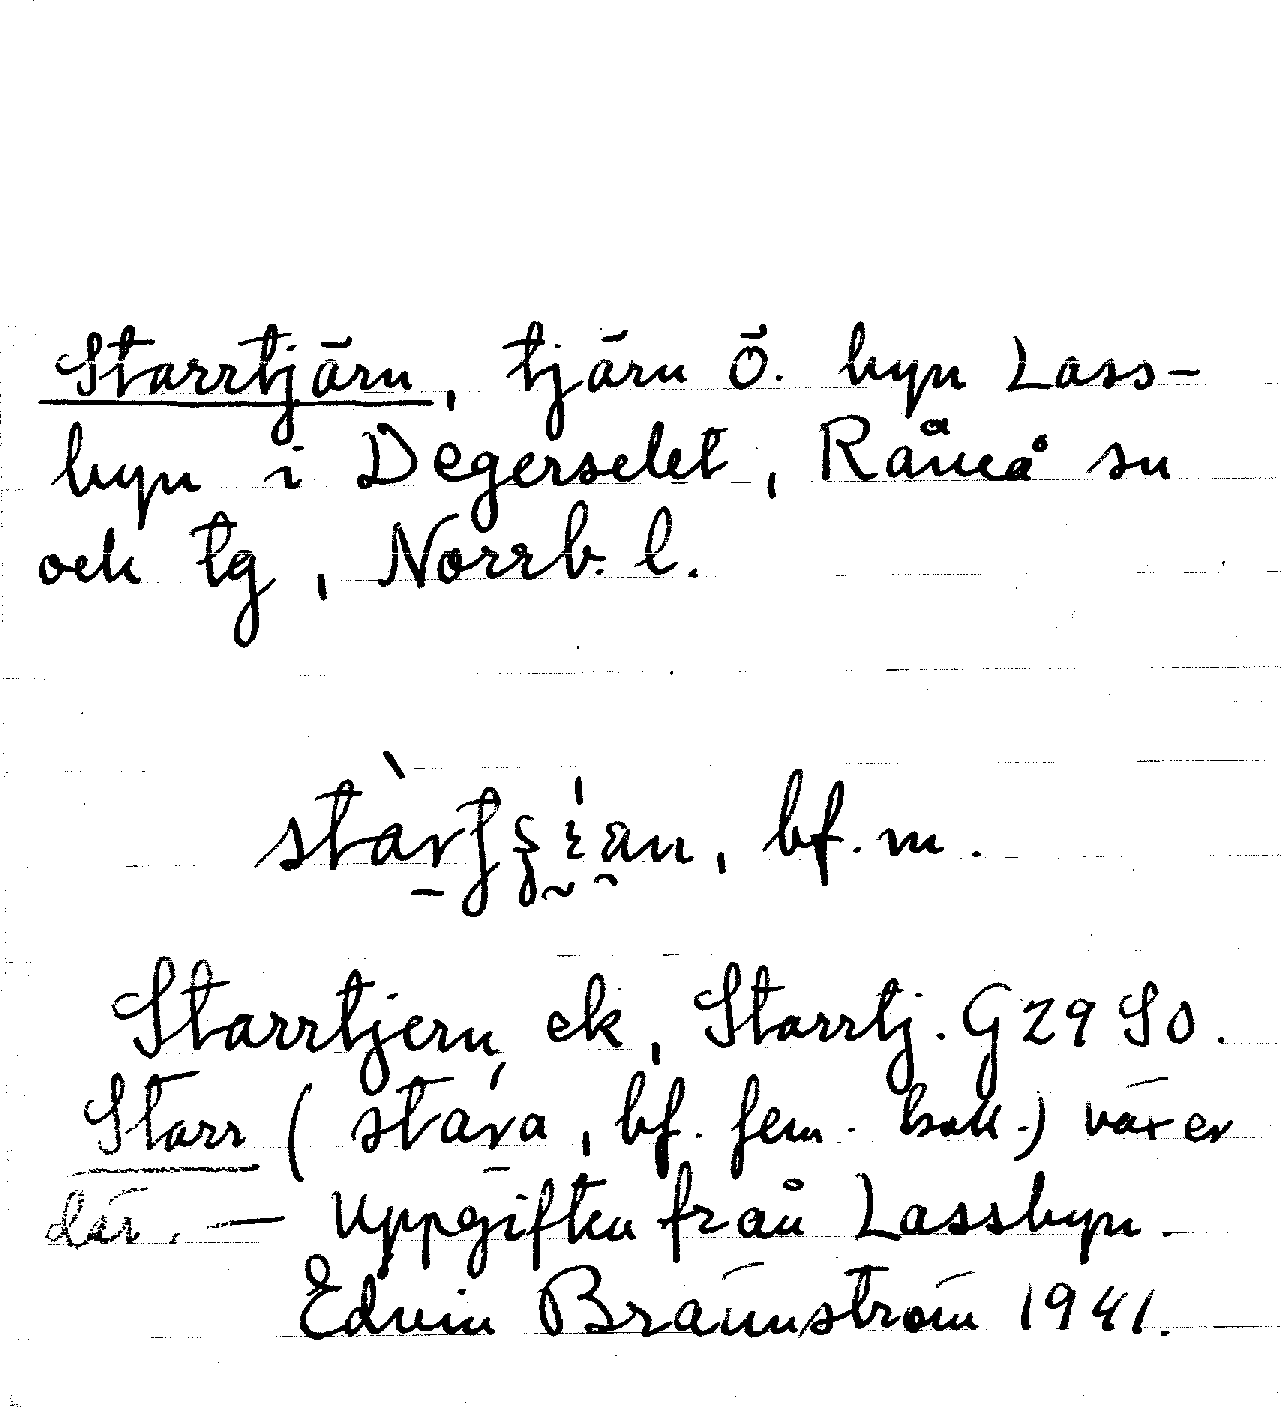 Starrtjärn, tjärn Ö. byn Lass-
byn i Degerselet, Råneå sn
och tg, Norrb. l.
bf. m.
Starrtjern, ek, Starrtj. G 29 SO.
Starr (stara, bf. fem. koll.) växer
där. — Uppgiften från Lassbyn.
Edvin Brännström 1941.